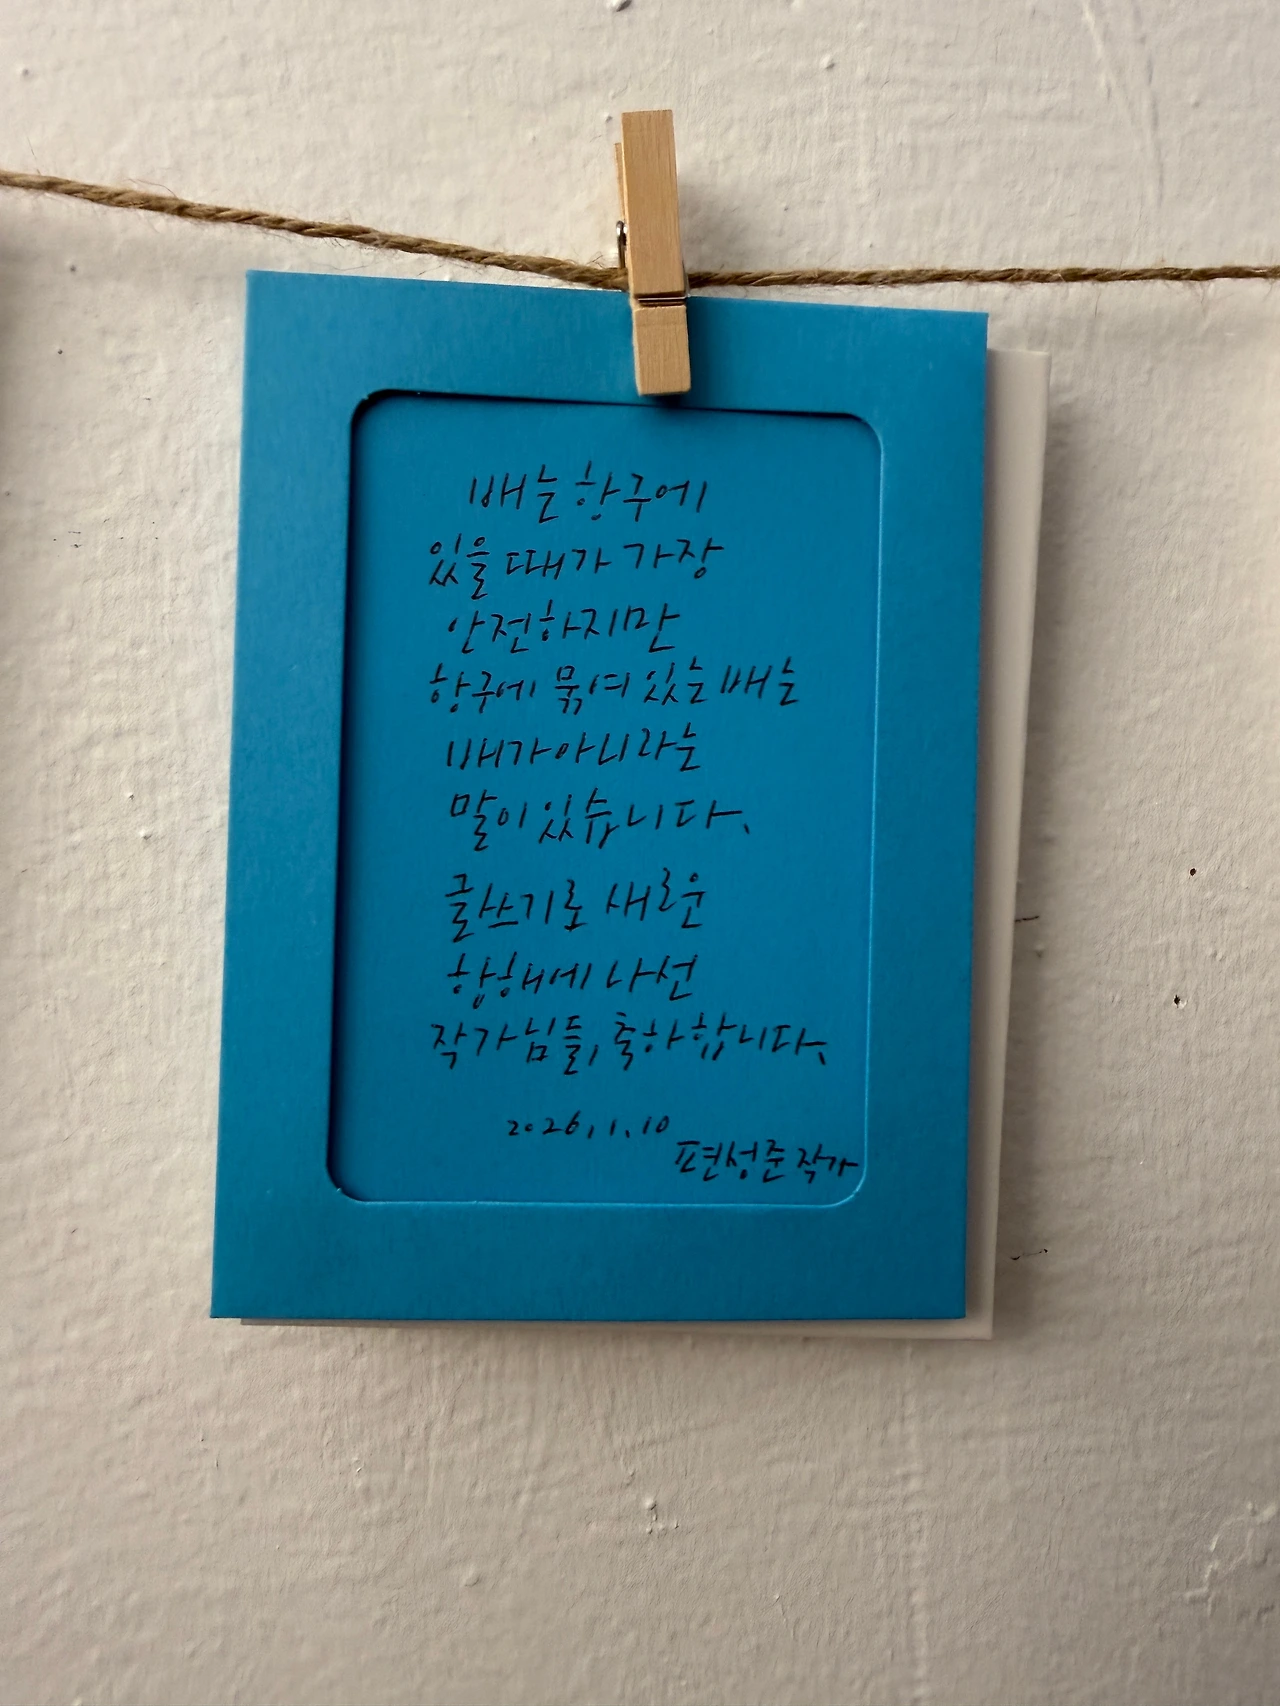 배는 항구에
있을 때가 가장
안전하지만
항구에 묶여 있는 배는
배가 아니라는
말이 있습니다.
글쓰기로 새로운
항해에 나선
작가님들, 축하합니다.
2026. 1. 10
편성준 작가